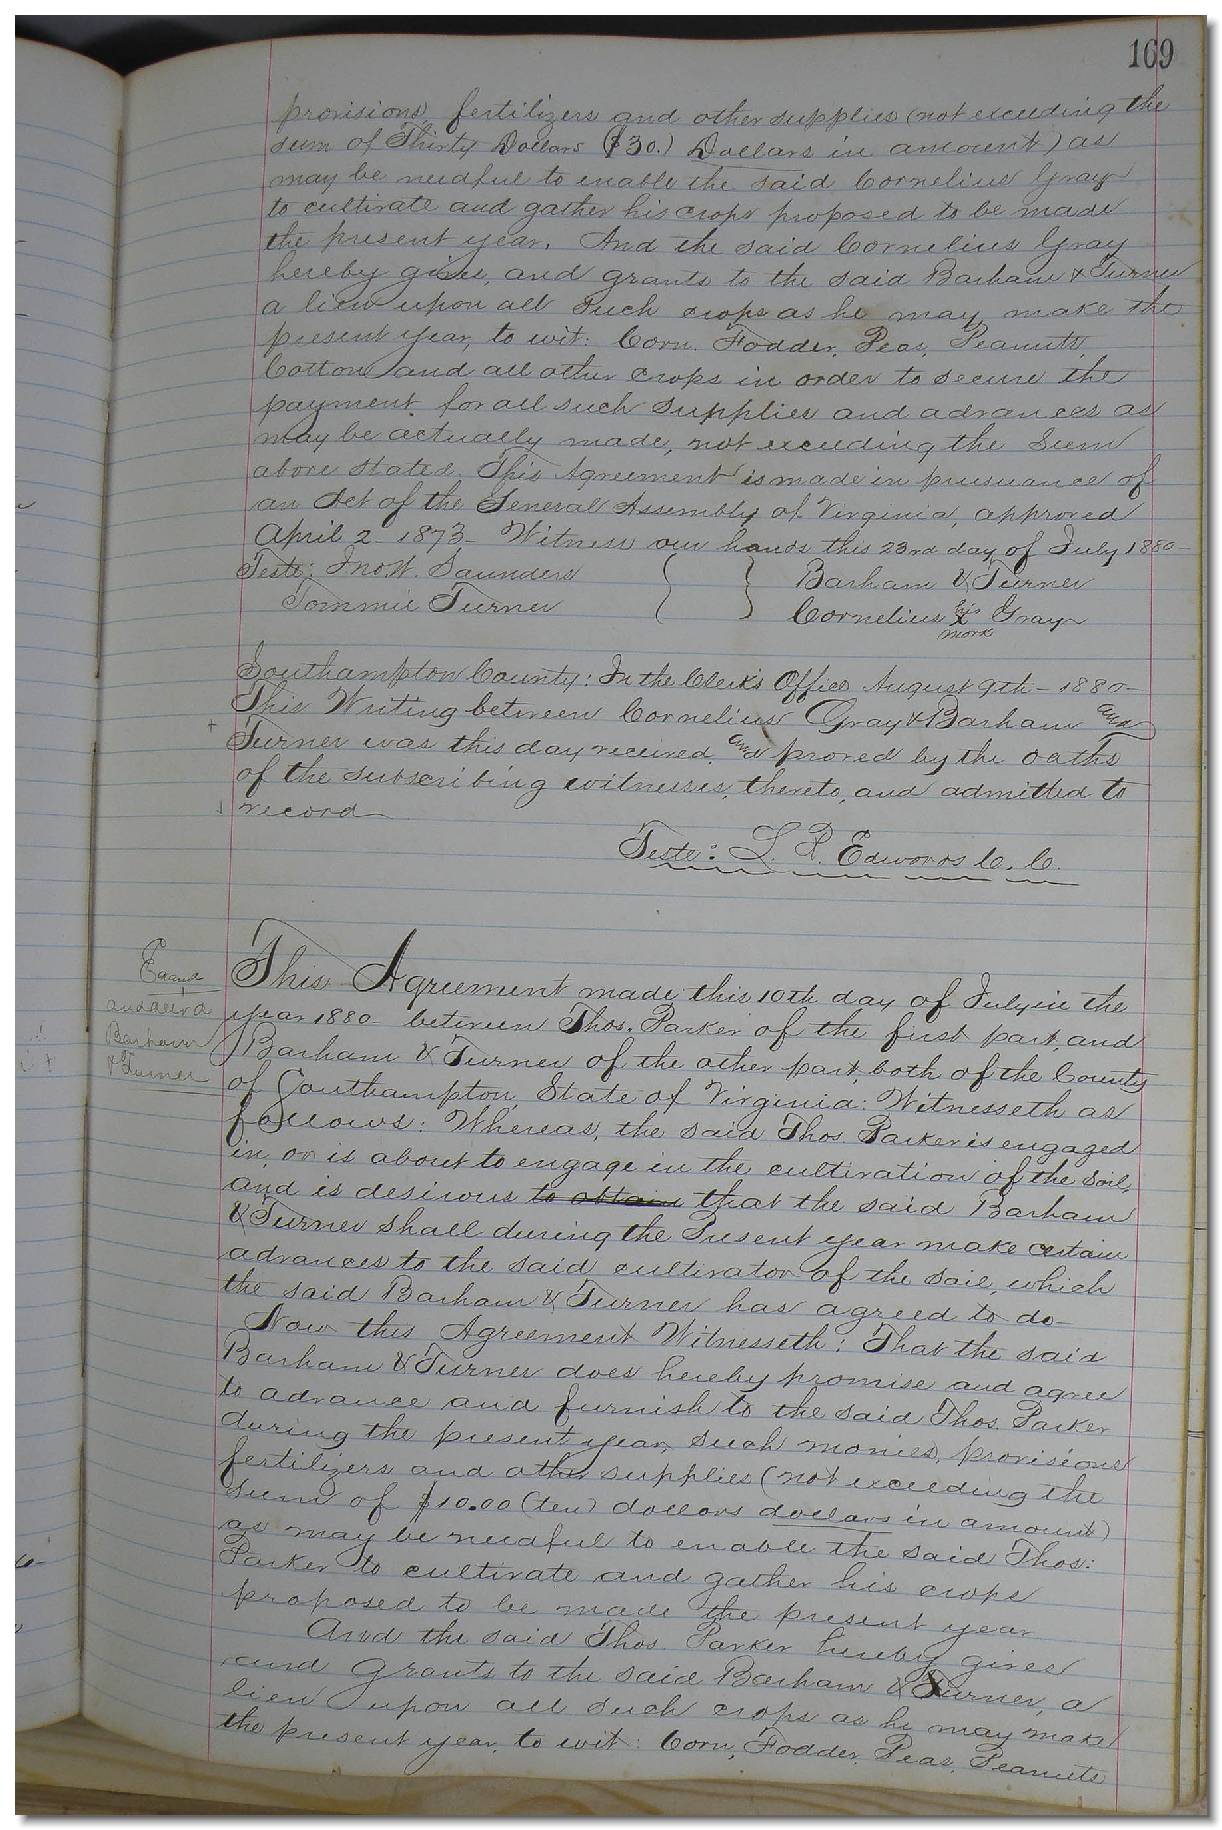 169
provisions, fertilizers and other supplies (not exceeding the
sum of Thirty Dollars ($30.) Dollars in amount) as
may be needful to enable the said Cornelius Gray
to cultivate and gather his crops proposed to be made
the present year. And the said Cornelius Gray
hereby gives, and grants to the said Barham & Turner
a lien upon all such crops as he may make the
present year, to wit: Corn. Fodder, Peas, Peanuts,
Cotton and all other crops in order to secure the
payment for all such supplies and advances as
may be actually made, not exceeding the sum
above stated. This Agreement is made in pursuance of
an Act of the General Assembly of Virginia, approved
April 2 - 1873 - Witness our hands this 23rd day of July 1880 -
Teste: Jno. W. Saunders } } Barham & Turner
Tommie Turner Cornelius his X mark Gray
Southampton County: In the Clerk's Office August 9th - 1880 -
This Writing between Cornelius Gray & Barham and
Turner was this day received, and proved by the oaths
of the subscribing witnesses, thereto, and admitted to
record
Teste: L. R. Edwards C. C.
This Agreement made this 10th day of July in the
year 1880 between Thos. Parker of the first part, and
Barham & Turner of the other part, both of the County
of Southampton, State of Virginia: Witnesseth as
follows: Whereas, the said Thos. Parker is engaged
in, or is about to engage in the cultivation of the soil,
and is desirous to obtain that the said Barham
& Turner shall during the Present year make certain
advances to the said cultivator of the soil, which
the said Barham & Turner has agreed to do -
Now this Agreement Witnesseth: That the said
Barham & Turner does hereby promise and agree
to advance and furnish to the said Thos. Parker
during the present year, such monies, provisions
fertilizers and other supplies (not exceeding the
sum of $10.00 (ten) dollars dollars in amount)
as may be needful to enable the said Thos:
Parker to cultivate and gather his crops
proposed to be made the present year
And the said Thos. Parker hereby gives
and grants to the said Barham & Turner, a
lien upon all such crops as he may make
the present year, to wit: Corn, Fodder, Peas, Peanuts
Barham
& Turner